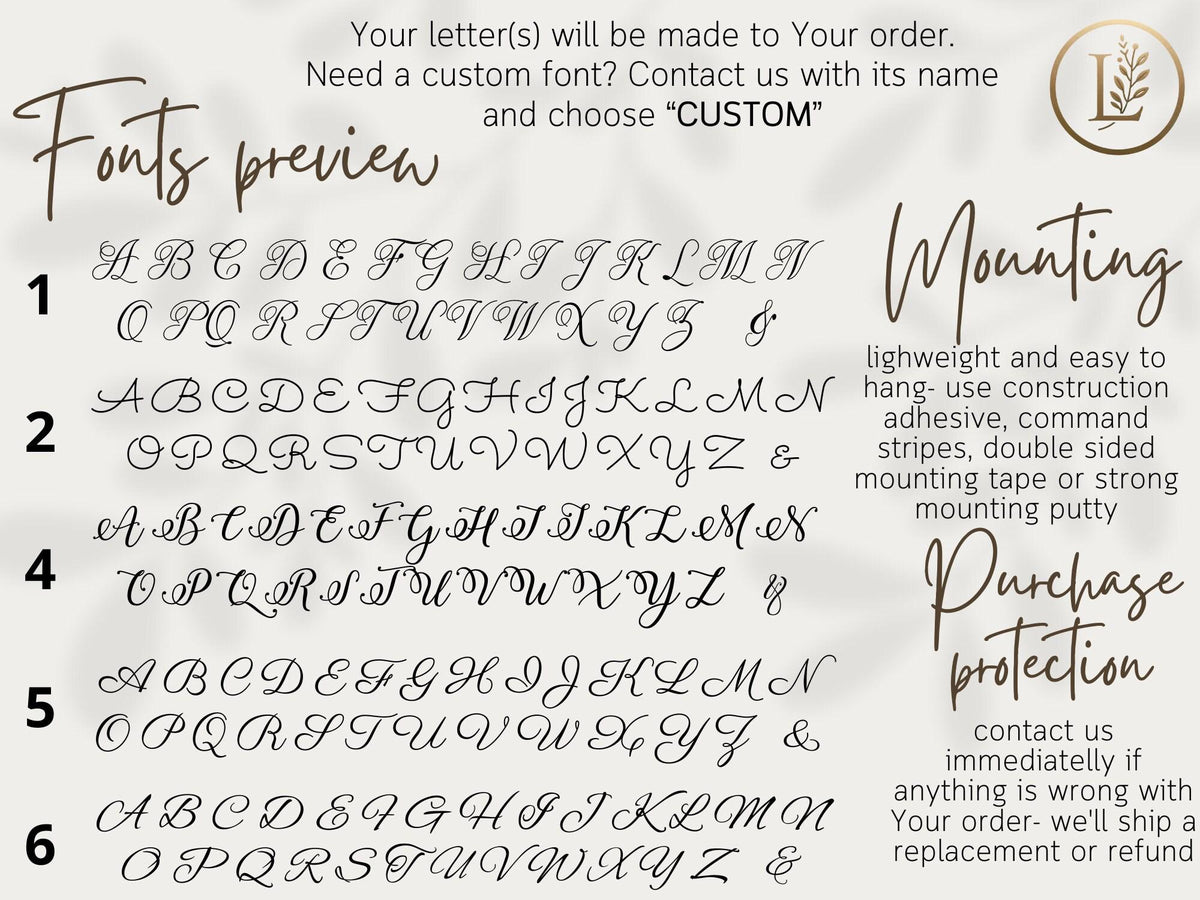 Your letter(s) will be made to Your order.
Need a custom font? Contact us with its name
and choose “CUSTOM”
L
Fonts preview
1
A B C D E F G H I J K L M N
O P Q R S T U V W X Y Z &
2
A B C D E F G H I J K L M N
O P Q R S T U V W X Y Z &
4
A B C D E F G H I J K L M N
O P Q R S T U V W X Y Z &
5
A B C D E F G H I J K L M N
O P Q R S T U V W X Y Z &
6
A B C D E F G H I J K L M N
O P Q R S T U V W X Y Z &
Mounting
lighweight and easy to
hang- use construction
adhesive, command
stripes, double sided
mounting tape or strong
mounting putty
Purchase
protection
contact us
immediatelly if
anything is wrong with
Your order- we'll ship a
replacement or refund